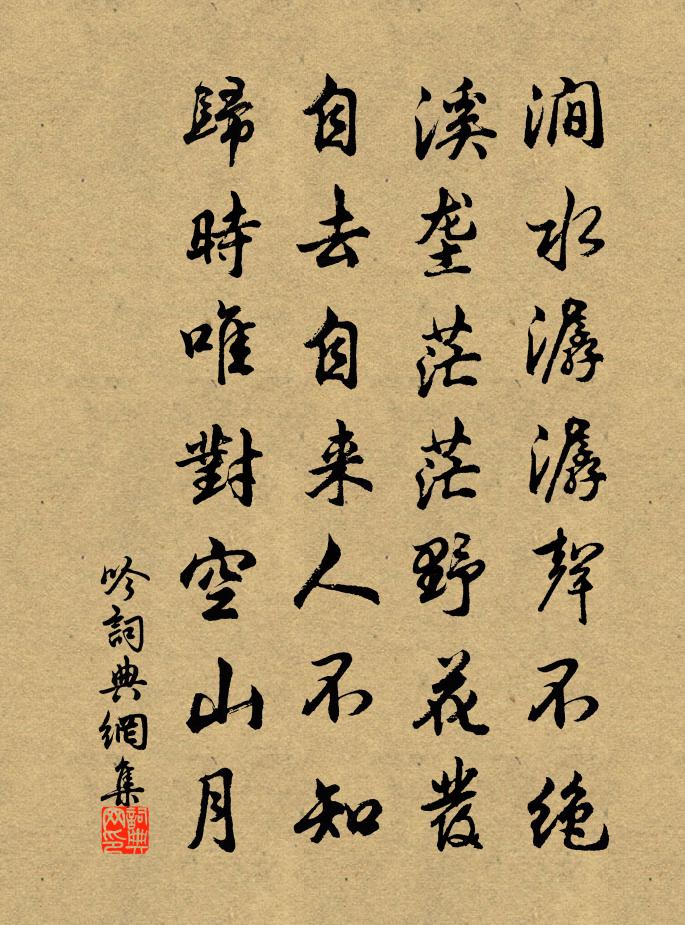 澗水潺潺聲不絶
溪垄茫茫野花發
自去自来人不知
歸時唯對空山月
吟詞典網集
詞典網印